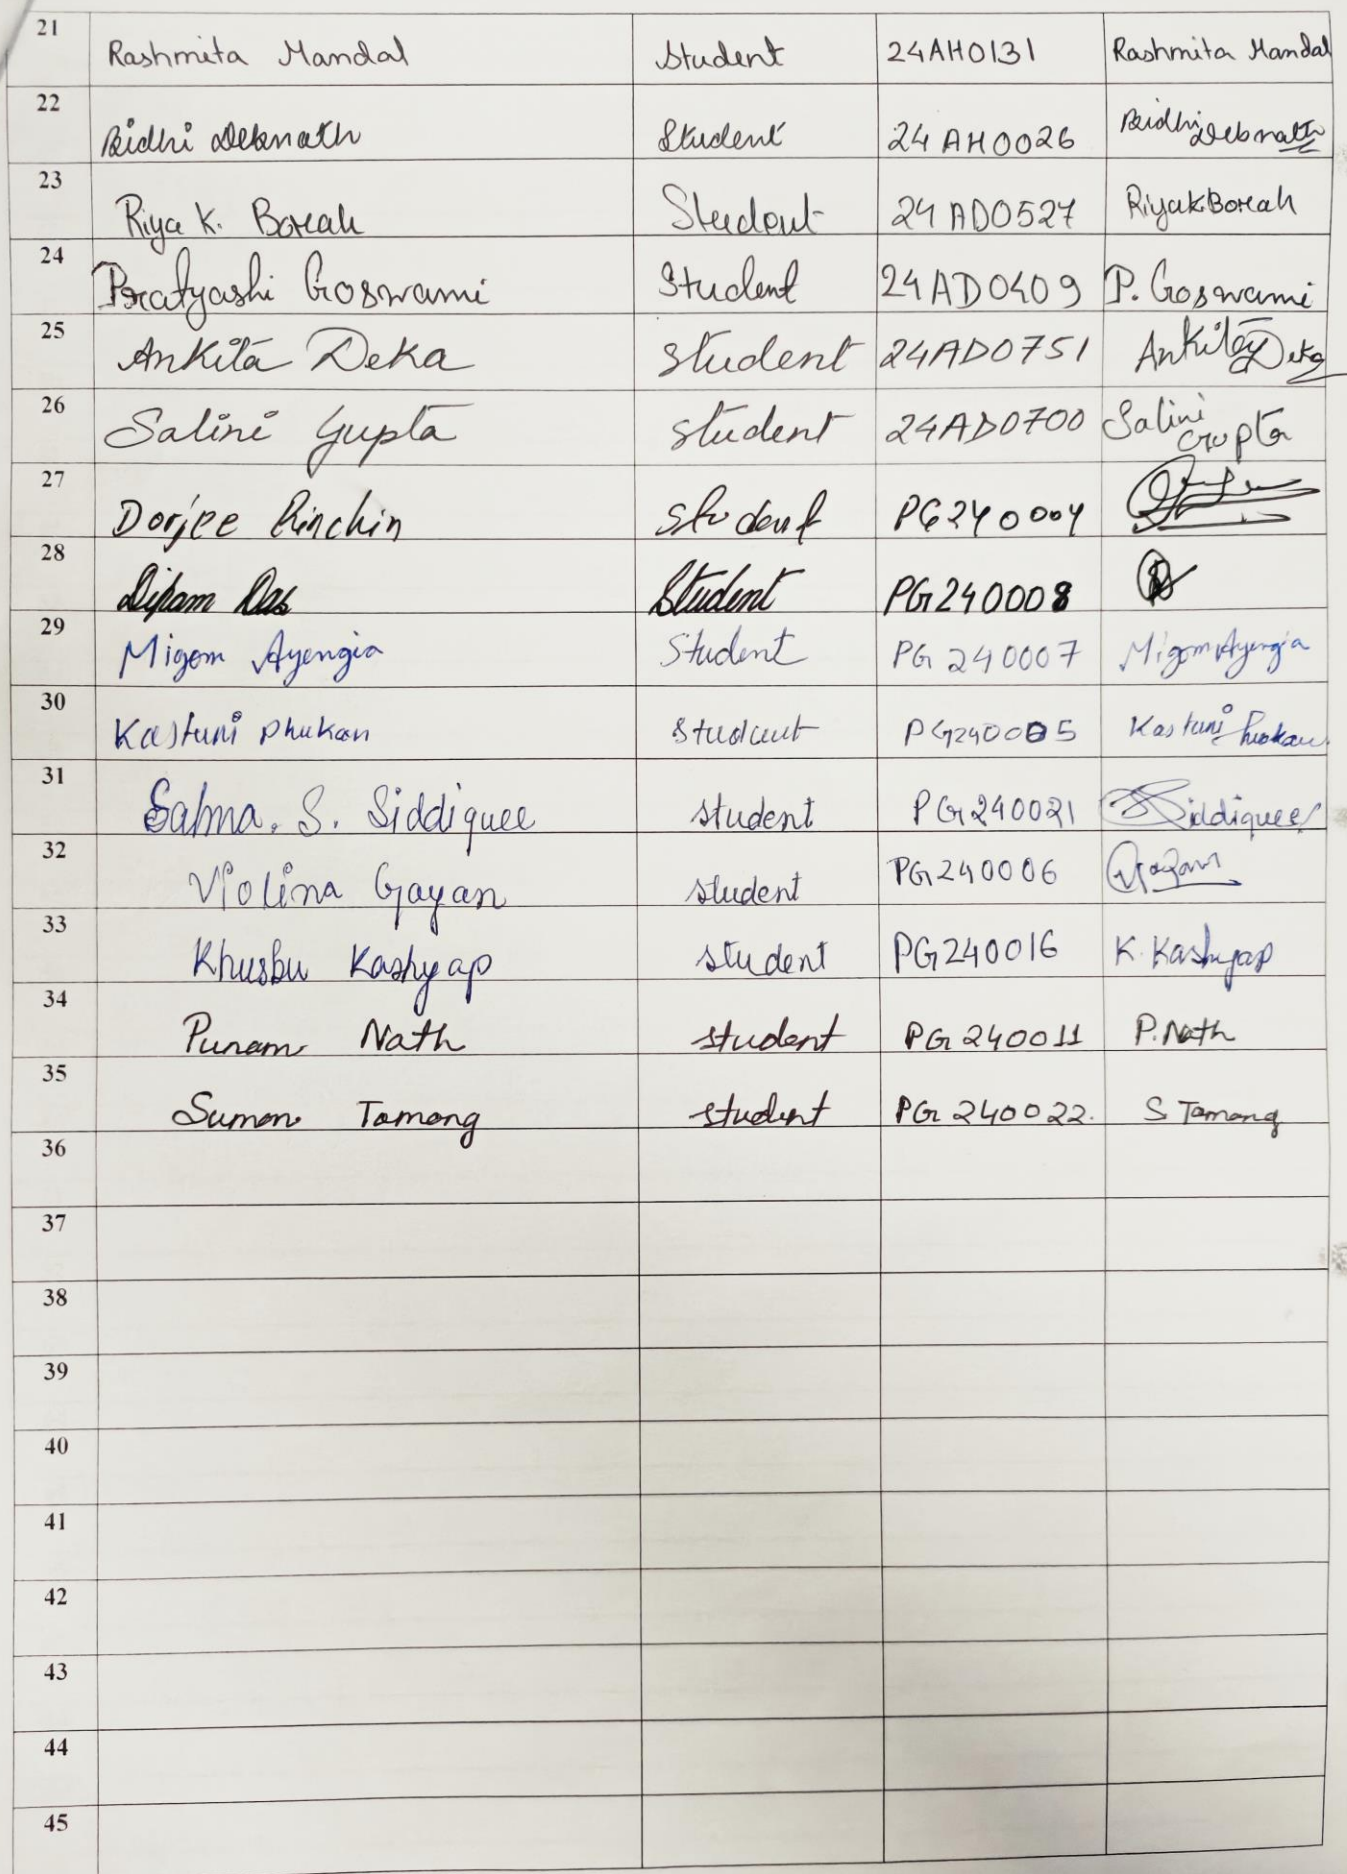 21 Rashmita Mandal Student 24AH0131 Rashmita Mandal
22 Bidhi Debnath Student 24AH0026 Bidhi Debnath
23 Riya K. Borah Student 24AD0527 Riya K Borah
24 Pratyashi Goswami Student 24AD0409 P. Goswami
25 Ankita Deka Student 24AD0751 Ankita Deka
26 Salini Gupta Student 24AD0700 Salini Gupta
27 Dorjee Rinchin Student PG240004
28 Dipam Das Student PG240008
29 Migom Ayengia Student PG240007 Migom Ayengia
30 Kasturi Phukan Student PG240005 Kasturi Phukan
31 Salma. S. Siddiquee Student PG240021 Siddiquee
32 Violina Gayan Student PG240006 Gayan
33 Khusbu Kashyap Student PG240016 K. Kashyap
34 Punam Nath Student PG240011 P. Nath
35 Suman Tamang Student PG240022. S Tamang
36
37
38
39
40
41
42
43
44
45